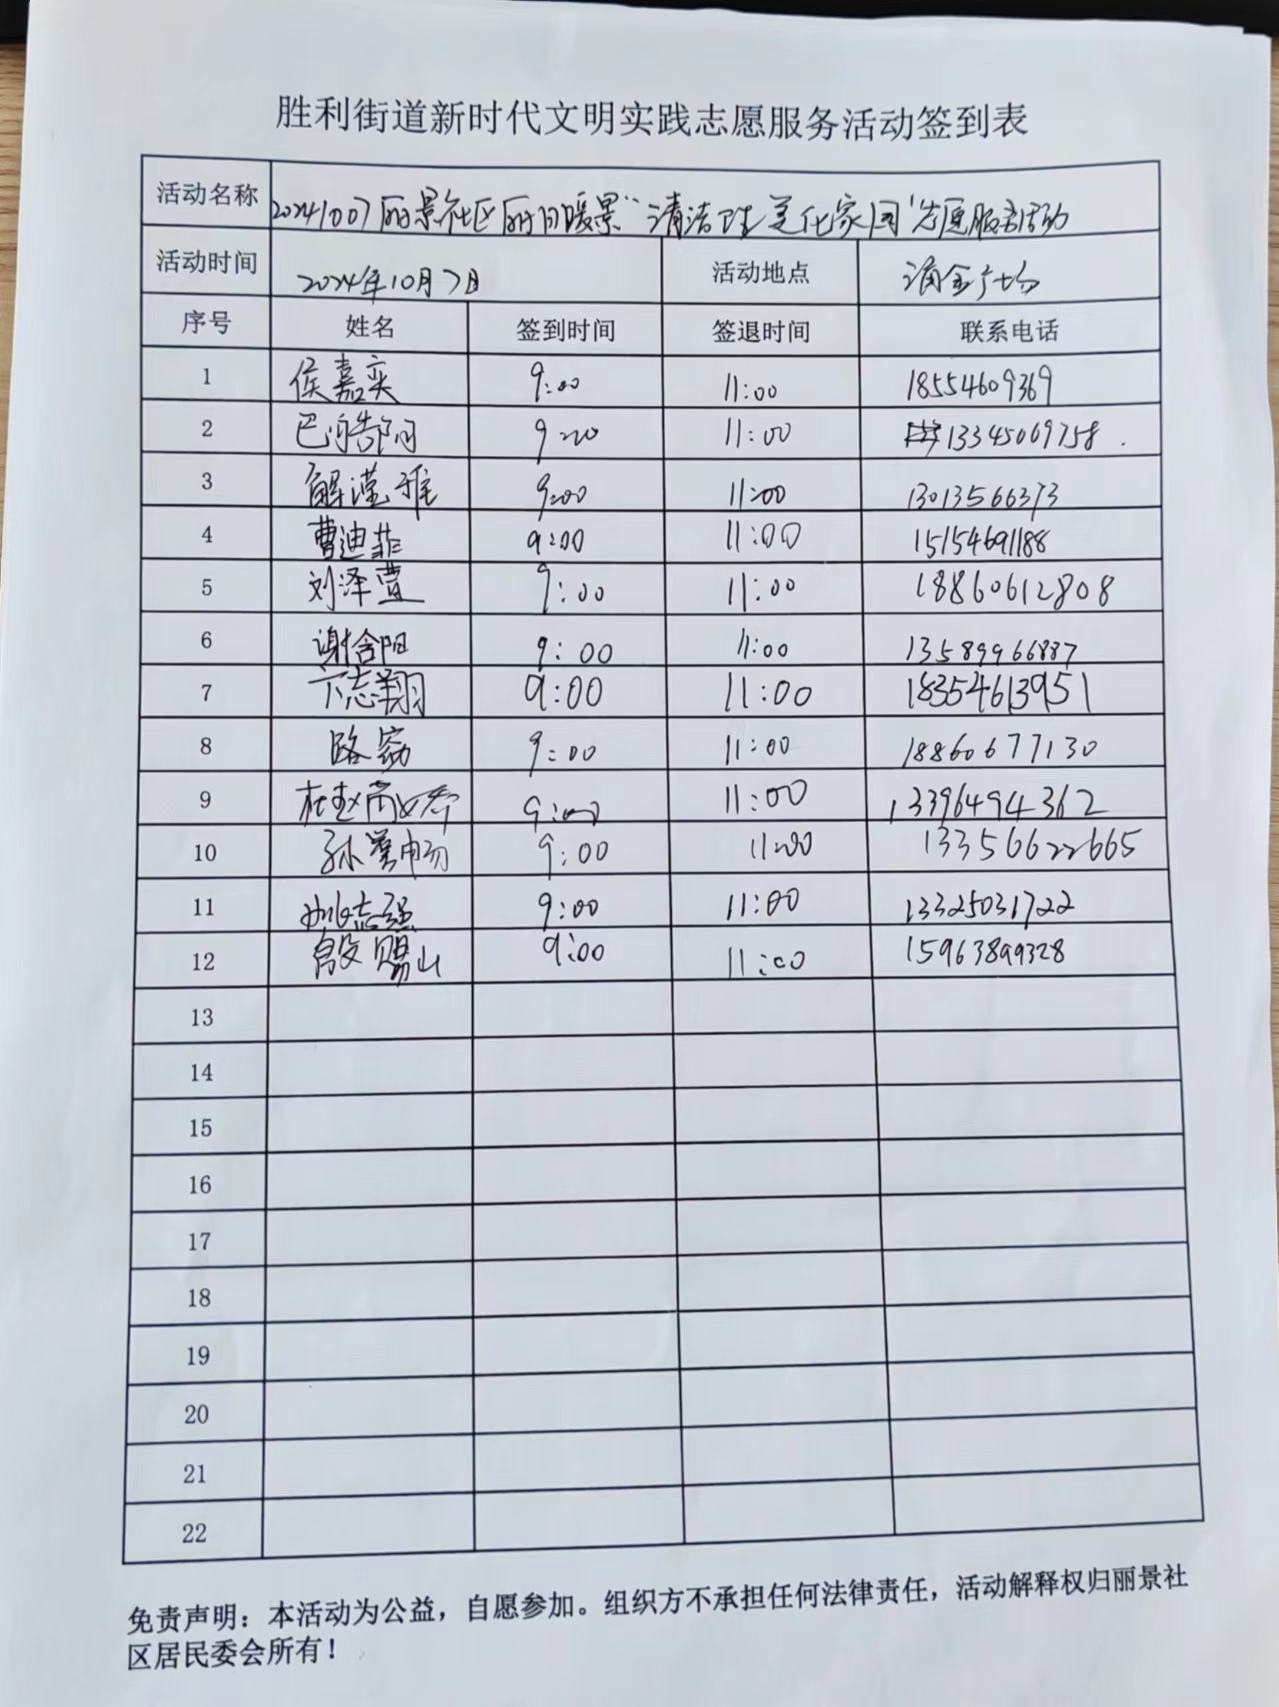 胜利街道新时代文明实践志愿服务活动签到表
活动名称 20241007丽景社区丽日暖景“清洁卫生美化家园”志愿服务活动
活动时间 2024年10月7日 活动地点 涌金广场
序号 姓名 签到时间 签退时间 联系电话
1 侯嘉奕 9:00 11:00 18554609369
2 9:00 11:00 13345069758
3 解滢雅 9:00 11:00 13013566373
4 曹迪菲 9:00 11:00 15154691188
5 刘泽萱 9:00 11:00 18860612808
6 谢含阳 9:00 11:00 13589966887
7 卞志翔 9:00 11:00 18354613951
8 路荔 9:00 11:00 18860677130
9 9:00 11:00 13396494362
10 9:00 11:00 13356622665
11 姚志强 9:00 11:00 13325031722
12 殷赐山 9:00 11:00 15963899328
13
14
15
16
17
18
19
20
21
22
免责声明：本活动为公益，自愿参加。组织方不承担任何法律责任，活动解释权归丽景社
区居民委会所有！